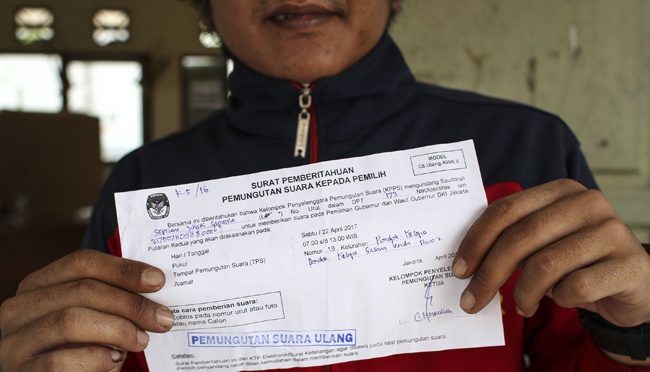 K-5/16
SURAT PEMBERITAHUAN
PEMUNGUTAN SUARA KEPADA PEMILIH
MODEL
C6 Ulang KWK
Bersama ini diberitahukan bahwa Kelompok Penyelenggara Pemungutan Suara (KPPS) mengundang Saudara/i
No. Urut dalam DPT 173 NIK/Identitas Lain
untuk memberikan suara pada Pemilihan Gubernur dan Wakil Gubernur DKI Jakarta
Putaran Kedua yang akan dilaksanakan pada:
Hari / Tanggal Sabtu / 22 April 2017
Pukul 07.00 s/d 13.00 WIB
Tempat Pemungutan Suara (TPS) Nomor 19 Kelurahan: Pondok Kelapa
Alamat Pondok Kelapa
April 2017
KELOMPOK PENYELENGGARA
PEMUNGUTAN SUARA
KETUA
cara pemberian suara:
Coblos pada nomor urut atau foto
atau nama Calon
PEMUNGUTAN SUARA ULANG
Catatan:
-Surat Pemberitahuan ini dan KTP Elektronik/Surat Keterangan agar dibawa pada saat pemungutan suara